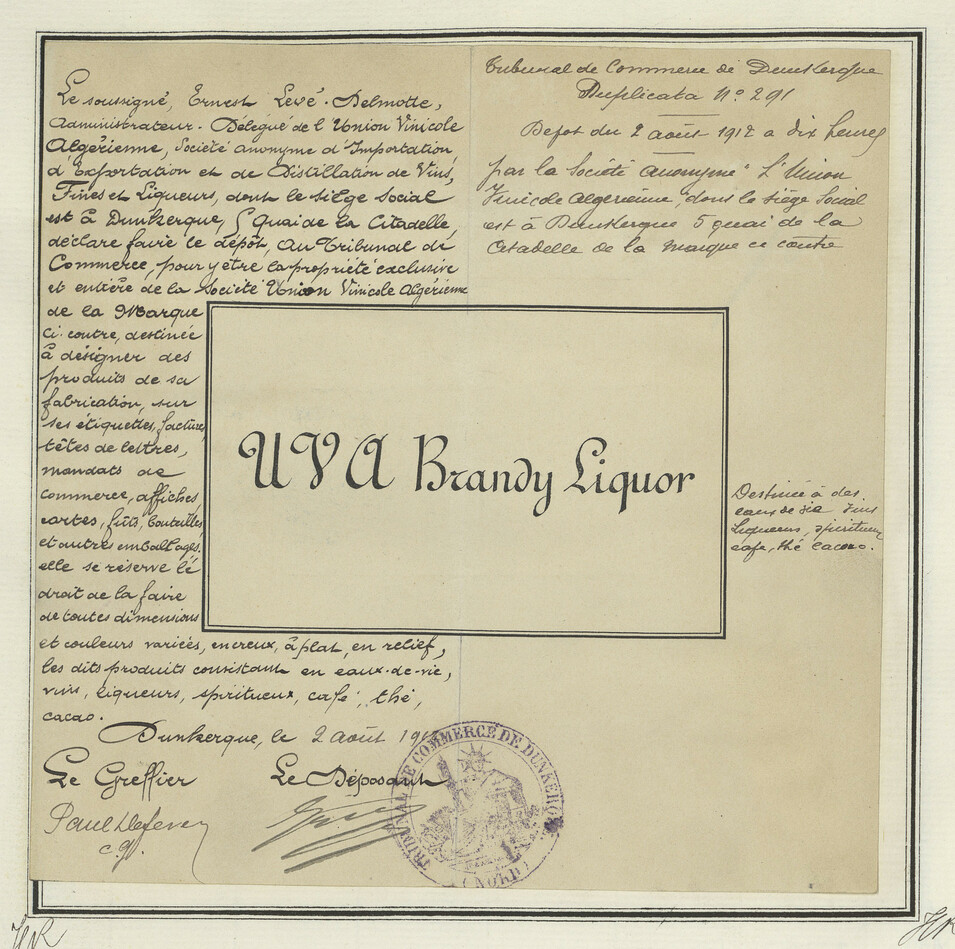 Le soussigné, Ernest Levé-Delmotte,
Administrateur-Délégué de l'Union Vinicole
Algérienne, Société anonyme d'Importation,
d'Exportation et de Distillation de Vins,
Fines et Liqueurs, dont le siège social
est à Dunkerque, 5 Quai de la Citadelle,
déclare faire le dépôt, au Tribunal de
Commerce, pour y être la propriété exclusive
et entière de la Société Union Vinicole Algérienne
de la Marque
ci-contre, destinée
à désigner des
produits de sa
fabrication, sur
ses étiquettes, factures,
têtes de lettres,
mandats de
commerce, affiches,
cartes, fûts, bouteilles
et autres emballages.
elle se réserve le
droit de la faire
de toutes dimensions
et couleurs variées, en creux, à plat, en relief,
les dits produits consistant en eaux-de-vie,
vins, liqueurs, spiritueux, café, thé,
cacao.
Dunkerque, le 2 août 191
Le Greffier Le Déposant
Paul
c. g.
Tribunal de Commerce de Dunkerque
Duplicata N° 291
Dépot du 2 août 1912 a dix heures
par la Société anonyme "L'Union
Vinicole Algérienne, dont le siège Social
est à Dunkerque 5 quai de la
Citadelle de la marque ci contre
UVA Brandy Liquor
Destinée à des
eaux de vie vins
liqueurs, spiritueux
cafe, thé cacao.
TRIBUNAL DE COMMERCE DE DUNKERQUE
(NORD)
HR
HR